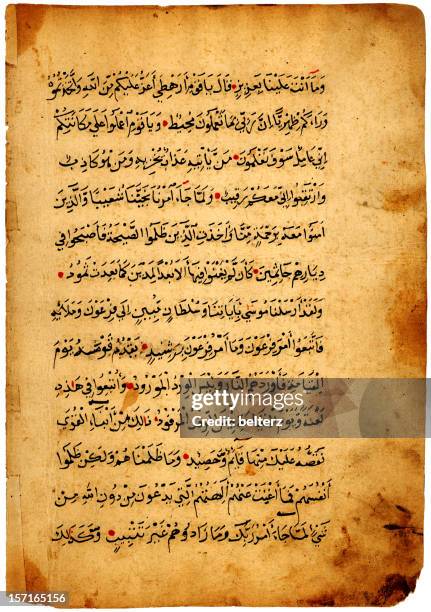 وَمَا أَنْتَ عَلَيْنَا بِعَزِيزٍ قَالَ يَاقَوْمِ أَرَهْطِي أَعَزُّ عَلَيْكُمْ مِنَ اللهِ وَاتَّخَذْتُمُوهُ
وَرَاءَكُمْ ظِهْرِيًّا إِنَّ رَبِّي بِمَا تَعْمَلُونَ مُحِيطٌ وَيَاقَوْمِ اعْمَلُوا عَلَى مَكَانَتِكُمْ
إِنِّي عَامِلٌ سَوْفَ تَعْلَمُونَ مَنْ يَأْتِيهِ عَذَابٌ يُخْزِيهِ وَمَنْ هُوَ كَاذِبٌ
وَارْتَقِبُوا إِنِّي مَعَكُمْ رَقِيبٌ وَلَمَّا جَاءَ أَمْرُنَا نَجَّيْنَا شُعَيْبًا وَالَّذِينَ
آمَنُوا مَعَهُ بِرَحْمَةٍ مِنَّا وَأَخَذَتِ الَّذِينَ ظَلَمُوا الصَّيْحَةُ فَأَصْبَحُوا فِي
دِيَارِهِمْ جَاثِمِينَ كَأَنْ لَمْ يَغْنَوْا فِيهَا أَلَا بُعْدًا لِمَدْيَنَ كَمَا بَعِدَتْ ثَمُودُ
وَلَقَدْ أَرْسَلْنَا مُوسَى بِآيَاتِنَا وَسُلْطَانٍ مُبِينٍ إِلَى فِرْعَوْنَ وَمَلَائِهِ
فَاتَّبَعُوا أَمْرَ فِرْعَوْنَ وَمَا أَمْرُ فِرْعَوْنَ بِرَشِيدٍ يَقْدُمُ قَوْمَهُ يَوْمَ
الْقِيَامَةِ فَأَوْرَدَهُمُ النَّارَ وَبِئْسَ الْوِرْدُ الْمَوْرُودُ وَأُتْبِعُوا فِي هَذِهِ
لَعْنَةً وَيَوْمَ الْمَرْفُودُ ذَلِكَ مِنْ أَنْبَاءِ الْقُرَى
نَقُصُّهُ عَلَيْكَ مِنْهَا قَائِمٌ وَحَصِيدٌ وَمَا ظَلَمْنَاهُمْ وَلَكِنْ ظَلَمُوا
أَنْفُسَهُمْ فَمَا أَغْنَتْ عَنْهُمْ آلِهَتُهُمُ الَّتِي يَدْعُونَ مِنْ دُونِ اللهِ مِنْ
شَيْءٍ لَمَّا جَاءَ أَمْرُ رَبِّكَ وَمَا زَادُوهُمْ غَيْرَ تَتْبِيبٍ وَكَذَلِكَ
gettyimages
Credit: belterz
517165156